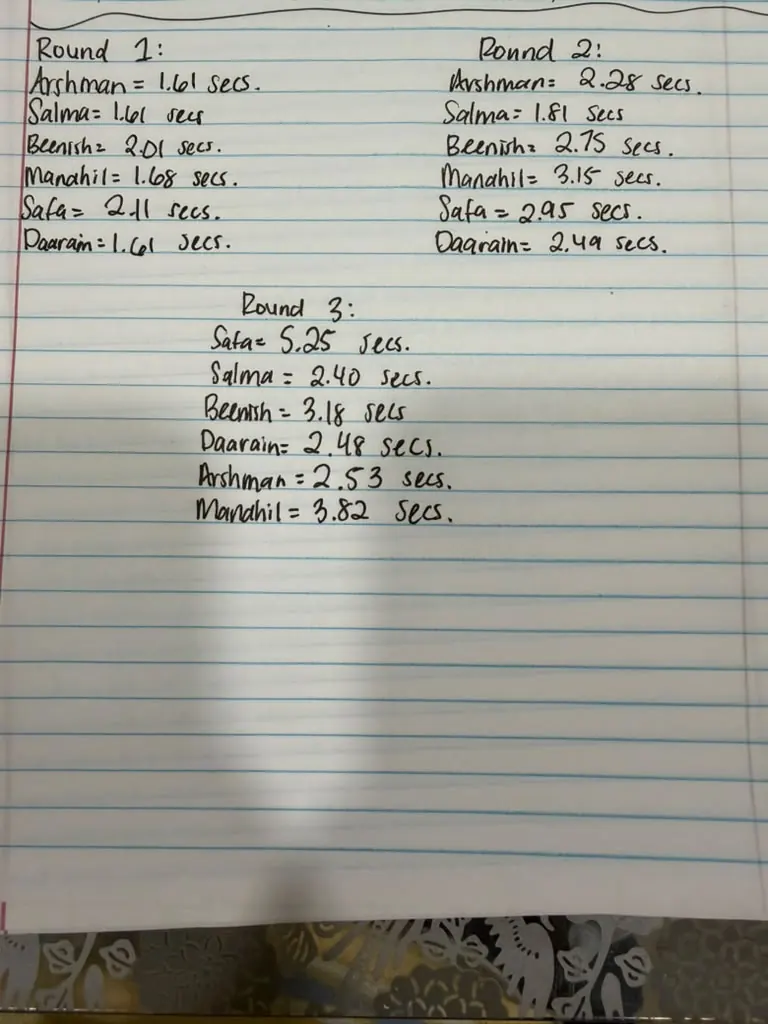 Round 1:
Arshman = 1.61 secs.
Salma = 1.61 secs
Beenish = 2.01 secs.
Manahil = 1.68 secs.
Safa = 2.11 secs.
Daarain = 1.61 secs.
Round 2:
Arshman = 2.28 secs.
Salma = 1.81 secs
Beenish = 2.75 secs.
Manahil = 3.15 secs.
Safa = 2.95 secs.
Daarain = 2.49 secs.
Round 3:
Safa = 5.25 secs.
Salma = 2.40 secs.
Beenish = 3.18 secs
Daarain = 2.48 secs.
Arshman = 2.53 secs.
Manahil = 3.82 secs.